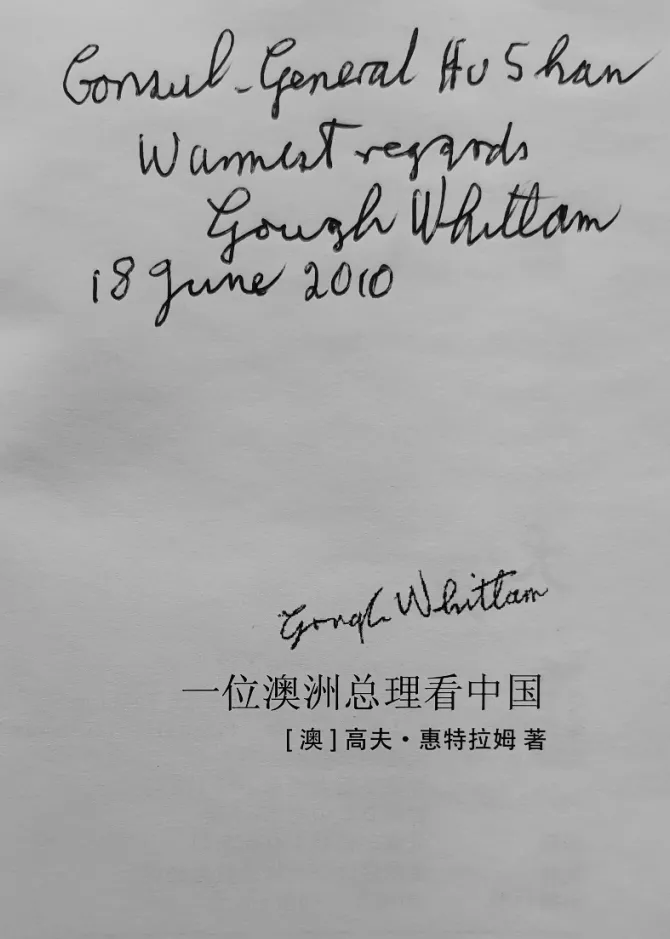 Consul-General Hu Shan
Warmest regards
Gough Whitlam
18 June 2010
Gough Whitlam
一位澳洲总理看中国
[澳]高夫·惠特拉姆 著